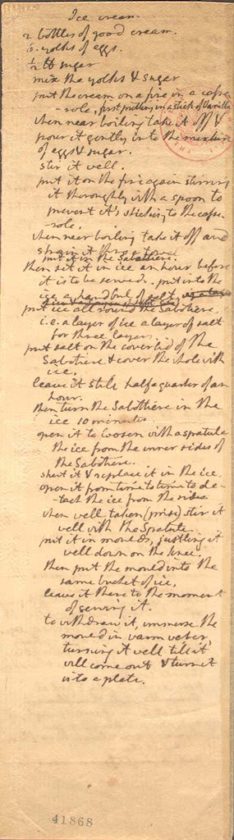 Ice cream.
2. bottles of good cream.
6. yolks of eggs.
½ lb sugar
mix the yolks & sugar
put the cream on a fire in a casse-
-role, first putting in a stick of Vanilla.
when near boiling take it off &
pour it gently into the mixture
of eggs & sugar.
stir it well.
put it on the fire again stirring
it thoroughly with a spoon to
prevent it's sticking to the casse-
-role.
when near boiling take it off and
strain it thro' a towel.
put it in the Sabottiere
then set it in ice an hour before
it is to be served. put into the
ice a handful of salt.
put ice all round the Sabottiere
i.e. a layer of ice a layer of salt
for three layers.
put salt on the coverlid of the
Sabotiere & cover the whole with
ice.
leave it still half a quarter of an
hour.
then turn the Sabottiere in the
ice 10 minutes
open it to loosen with a spatula
the ice from the inner sides of
the Sabotiere.
shut it & replace it in the ice
open it from time to time to de-
-tach the ice from the sides
when well taken (prise) stir it
well with the Spatula.
put it in moulds, justling it
well down on the knee.
then put the mould into the
same bucket of ice.
leave it there to the moment
of serving it.
to withdraw it, immerse the
mould in warm water,
turning it well till it
will come out & turn it
into a plate.
41868